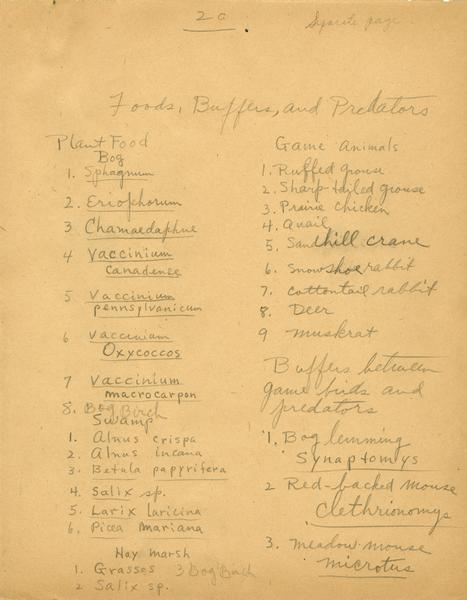 2a
Separate page
Foods, Buffers, and Predators
Plant Food
Bog
1. Sphagnum
2. Eriophorum
3 Chamaedaphne
4 Vaccinium
canadense
5 Vaccinium
pennsylvanicum
6 Vaccinium
Oxycoccos
7 Vaccinium
macrocarpon
8. Bog Birch
Swamp
1. Alnus crispa
2. Alnus incana
3. Betula papyrifera
4. Salix sp.
5. Larix laricina
6. Picea mariana
Hay marsh
1. Grasses 3 Bog Birch
2 Salix sp.
Game Animals
1. Ruffed grouse
2. Sharp-tailed grouse
3. Prairie chicken
4. Quail
5. Sandhill crane
6. Snowshoe rabbit
7. Cottontail rabbit
8. Deer
9 muskrat
Buffers between
game birds and
predators
1. Bog lemming
Synaptomys
2 Red-backed mouse
Clethrionomys
3. meadow mouse
microtus